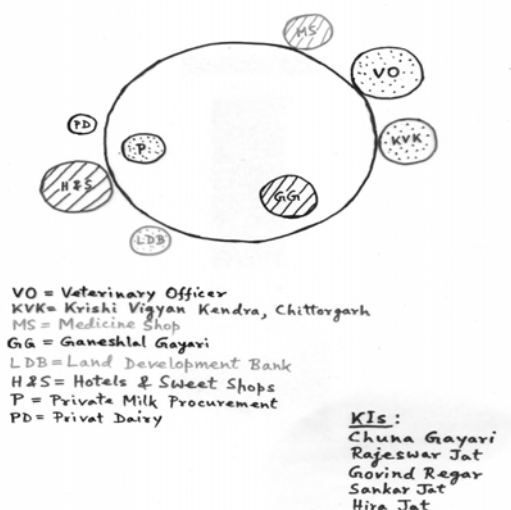 MS
VO
PD
KVK
P
H&S
GG
LDB
VO = Veterinary Officer
KVK= Krishi Vigyan Kendra, Chittorgarh
MS = Medicine Shop
GG = Ganeshlal Gayari
LDB = Land Development Bank
H&S = Hotels & Sweet Shops
P = Private Milk Procurement
PD = Privat Dairy
KIs :
Chuna Gayari
Rajeswar Jat
Govind Regar
Sankar Jat
Hira Jat